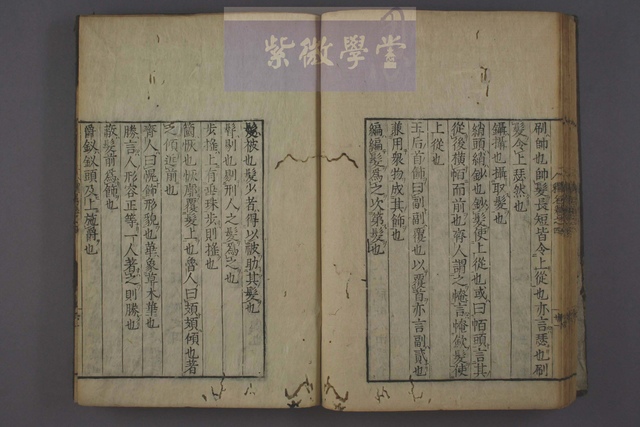 紫微學堂
刷帥也帥髮長短皆令上從也亦言瑟也刷
髮令上瑟然也
鑷攝也攝取髮也
綃頭綃鈔也鈔髮使上從也或曰帕頭言其
從後橫帕而前也齊人謂之㡋言㡋斂髮使
上從也
王后首飾曰副副覆也以覆首亦言副貳也
兼用衆物成其飾也
編編髮爲之次第髮也
髲被也髮少者得以被助其髮也
鬄剔也剔刑人之髮爲之也
步搖上有垂珠步則搖也
簂恢也恢廓覆髮上也魯人曰頍頍傾也著
之傾近前也
齊人曰㡇飾形貌也華象草木華也
勝言人形容正等一人著之則勝也
蔽髮前爲飾也
爵釵釵頭及上施爵也